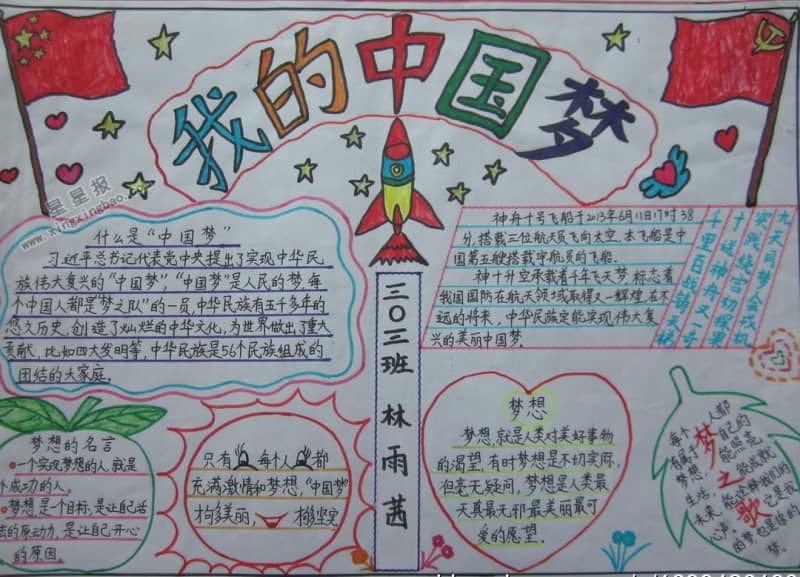 我的中国梦
星星报
www.xingxingbao.cn
什么是“中国梦”
习近平总书记代表党中央提出了实现中华民
族伟大复兴的“中国梦”,“中国梦”是人民的梦.每
个中国人都是“梦之队”的一员,中华民族有五千多年的
悠久历史,创造了灿烂的中华文化,为世界做出了重大
贡献,比如四大发明等,中华民族是56个民族组成的
团结的大家庭.
神舟十号飞船于2013年6月11日17时38
分,搭载三位航天员飞向太空.本飞船是中
国第五艘搭载宇航员的飞船.
神十升空承载着千年飞天梦,标志着
我国国防在航天领域取得又一辉煌,在不
远的将来,中华民族定能实现伟大复
兴的美丽中国梦.
九天同梦会戎机
实战绕空切探巢
十送神舟又一奇
千里百战铸天梯
三〇三班 林雨茜
梦想的名言
一个实现梦想的人,就是
个成功的人.
梦想是一个目标,是让自己活
法的原动力,是让自己开心
的原因.
只有每个人都
充满激情和梦想,“中国梦”
才够美丽,才够坚实
梦想
梦想,就是人类对美好事物
的渴望,有时梦想是不切实际,
但毫无疑问,梦想是人类最
天真最无邪最美丽最可
爱的愿望.
梦之歌
每个人都
有属于自己的
梦想
能照亮
生活
能成就
未来
心声
梦.